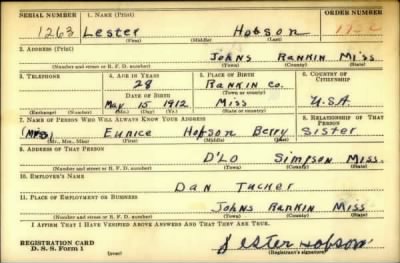 SERIAL NUMBER 1. NAME (Print) ORDER NUMBER
1263 Lester Hobson
(First) (Middle) (Last)
2. ADDRESS (Print)
Johns Rankin Miss.
(Number and street or R. F. D. number) (Town) (County) (State)
3. TELEPHONE 4. AGE IN YEARS 5. PLACE OF BIRTH 6. COUNTRY OF CITIZENSHIP
28 Rankin Co.
DATE OF BIRTH (Town or county)
May 15 1912 Miss U.S.A.
(Exchange) (Number) (Mo.) (Day) (Yr.) (State or country)
7. NAME OF PERSON WHO WILL ALWAYS KNOW YOUR ADDRESS 8. RELATIONSHIP OF THAT PERSON
(Mrs) Eunice Hobson Berry Sister
(Mr., Mrs., Miss) (First) (Middle) (Last)
9. ADDRESS OF THAT PERSON
D'Lo Simpson Miss.
(Number and street or R. F. D. number) (Town) (County) (State)
10. EMPLOYER'S NAME
Dan Tucker
11. PLACE OF EMPLOYMENT OR BUSINESS
Johns Rankin Miss
(Number and street or R. F. D. number) (Town) (County) (State)
I AFFIRM THAT I HAVE VERIFIED ABOVE ANSWERS AND THAT THEY ARE TRUE.
REGISTRATION CARD
D. S. S. Form 1 (over) Lester Hobson
(Registrant's signature)